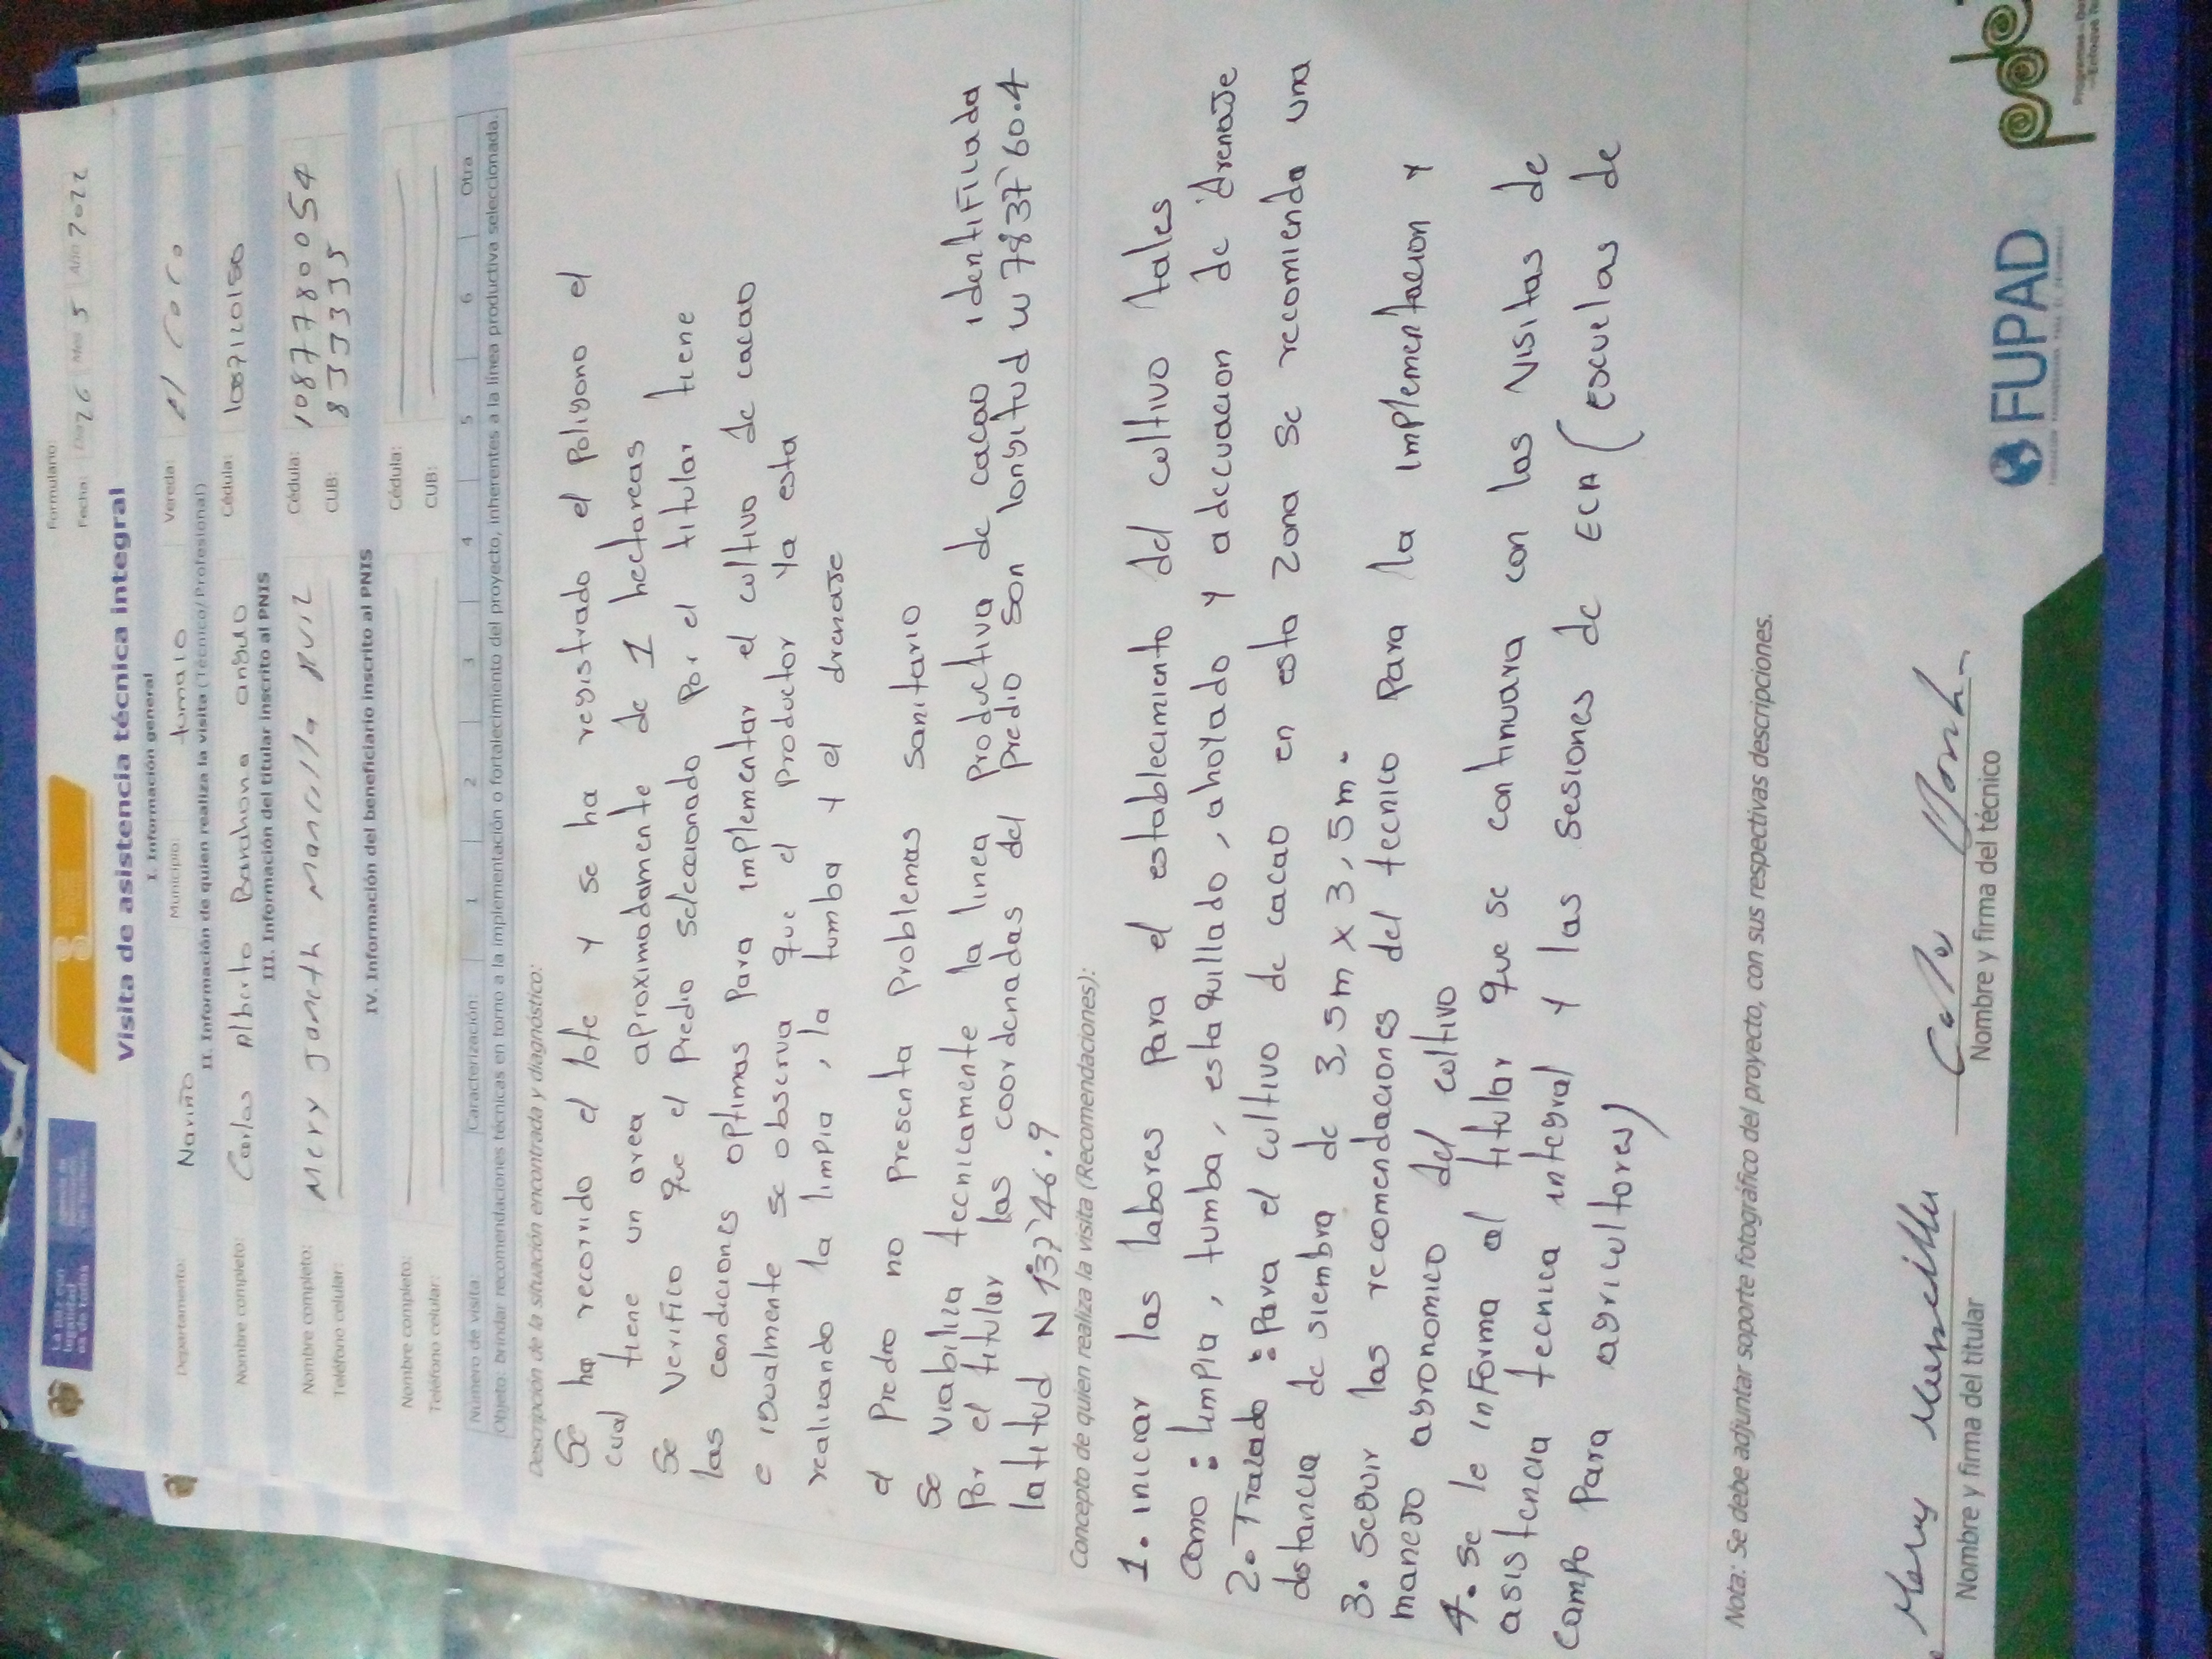 Formulario
Fecha: Día 26 Mes 5 Año 2022
Visita de asistencia técnica integral
I. Información general
Departamento: Nariño Municipio: tumaco Vereda: el Coco
II. Información de quien realiza la visita (Técnico/Profesional)
Nombre completo: Carlos Alberto Barahona angulo Cédula: 1087120150
III. Información del titular inscrito al PNIS
Nombre completo: Mery Janeth Mancilla Ruiz Cédula: 1087780054
Teléfono celular: CUB: 8333335
IV. Información del beneficiario inscrito al PNIS
Nombre completo: Cédula:
Teléfono celular: CUB:
Número de visita: Caracterización: 1 2 3 4 5 6 Otra
Objeto: brindar recomendaciones técnicas en torno a la implementación o fortalecimiento del proyecto, inherentes a la línea productiva seleccionada.
Descripción de la situación encontrada y diagnóstico:
Se ha recorrido el lote y se ha registrado el poligono el
cual tiene un area aproximadamente de 1 hectareas
Se verifico que el predio seleccionado por el titular tiene
las condiciones optimas para implementar el cultivo de cacao
e igualmente se observa que el productor ya esta
realizando la limpia, la tumba y el drenaje
el predio no presenta problemas sanitario
Se viabiliza tecnicamente la linea productiva de cacao identificada
por el titular las coordenadas del predio son longitud w 7837'60.4
latitud N 137'46.9
Concepto de quien realiza la visita (Recomendaciones):
1. iniciar las labores para el establecimiento del cultivo tales
como: limpia, tumba, estaquillado, ahoyado y adecuacion de drenaje
2. Trazado: Para el cultivo de cacao en esta zona se recomienda una
distancia de siembra de 3,5m x 3,5m.
3. seguir las recomendaciones del tecnico para la implementacion y
manejo agronomico del cultivo
4. se le informa al titular que se continuara con las visitas de
asistencia tecnica integral y las sesiones de ECA (escuelas de
campo para agricultores)
Nota: Se debe adjuntar soporte fotográfico del proyecto, con sus respectivas descripciones.
Mery Mancilla
Nombre y firma del titular
Nombre y firma del técnico
FUPAD